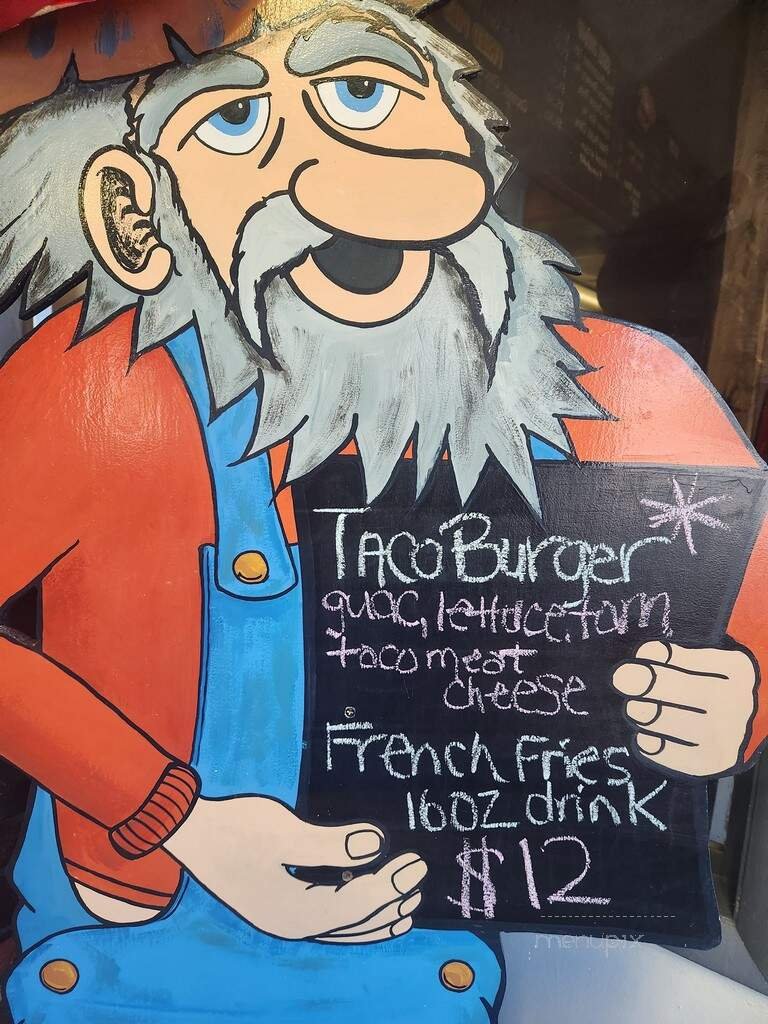 Taco Burger*
guac, lettuce, tom
taco meat
cheese
French Fries
16oz drink
$12
menupix